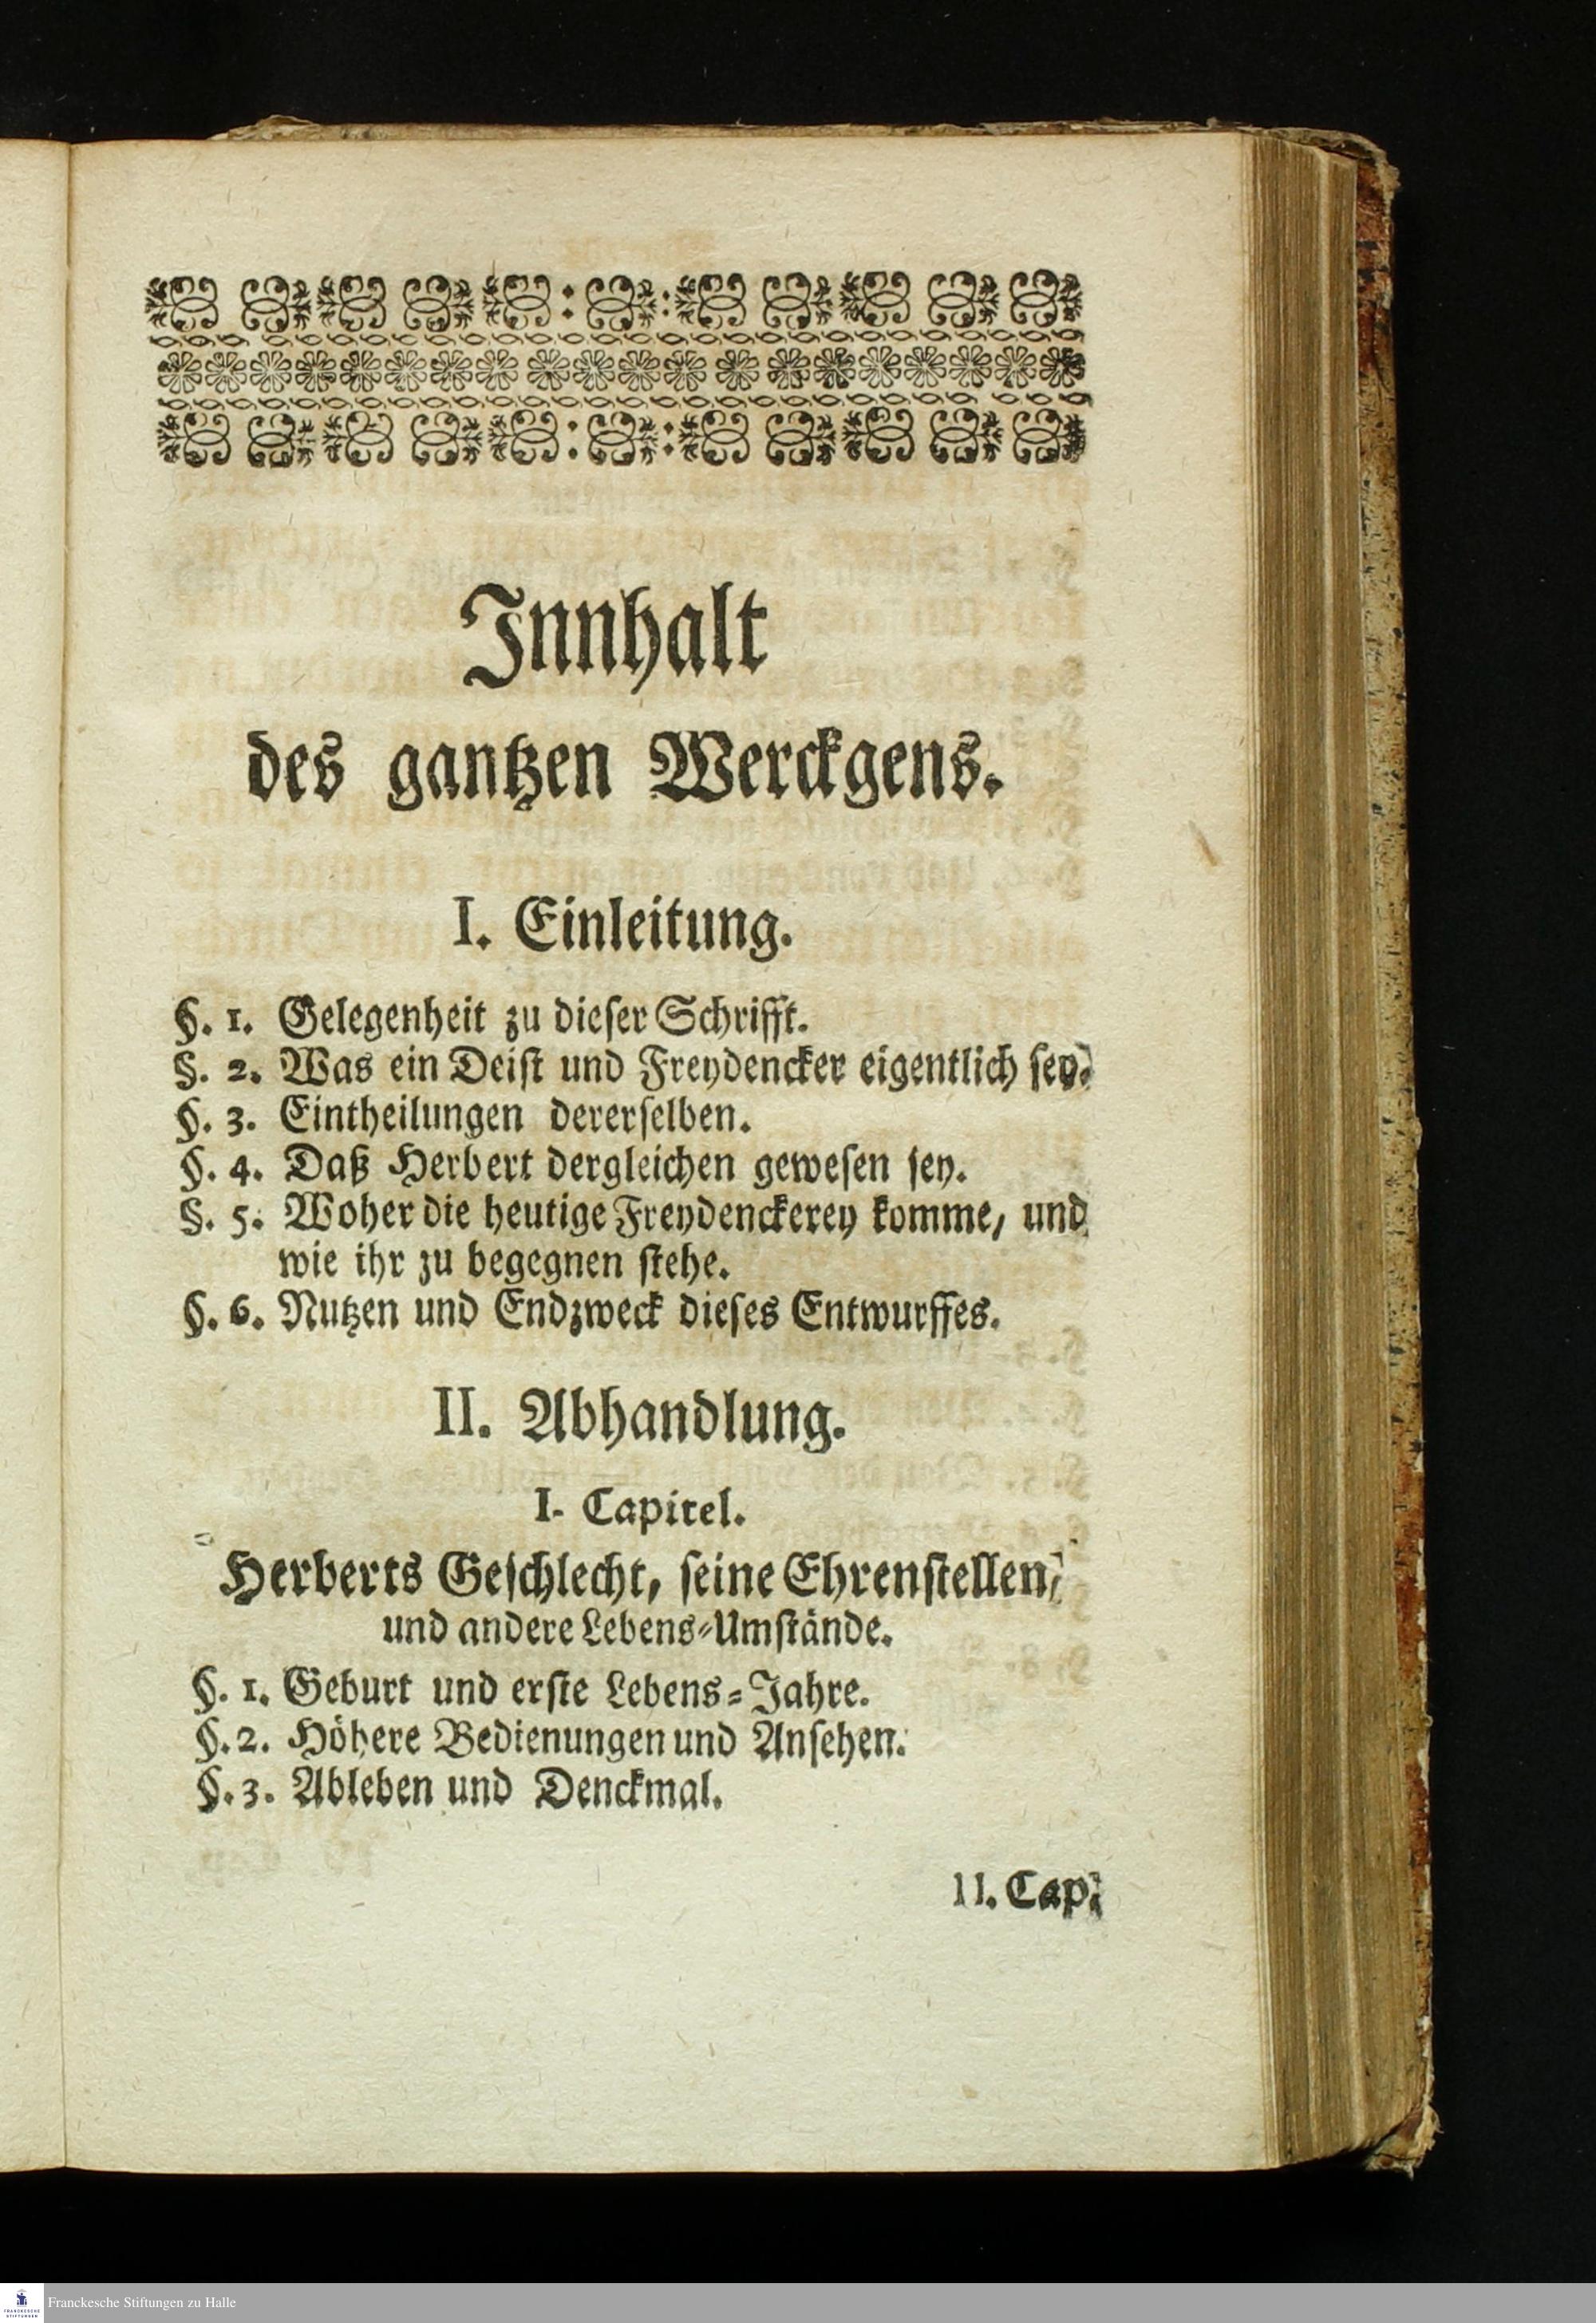 Innhalt
des gantzen Werckgens.
I. Einleitung.
§. 1. Gelegenheit zu dieser Schrifft.
§. 2. Was ein Deist und Freydencker eigentlich sey.
§. 3. Eintheilungen dererselben.
§. 4. Daß Herbert dergleichen gewesen sey.
§. 5. Woher die heutige Freydenckerey komme, und
wie ihr zu begegnen stehe.
§. 6. Nutzen und Endzweck dieses Entwurffes.
II. Abhandlung.
I. Capitel.
Herberts Geschlecht, seine Ehrenstellen,
und andere Lebens-Umstände.
§. 1. Geburt und erste Lebens-Jahre.
§. 2. Höhere Bedienungen und Ansehen.
§. 3. Ableben und Denckmal.
II. Cap.
FRANCKESCHE
STIFTUNGEN
Franckesche Stiftungen zu Halle